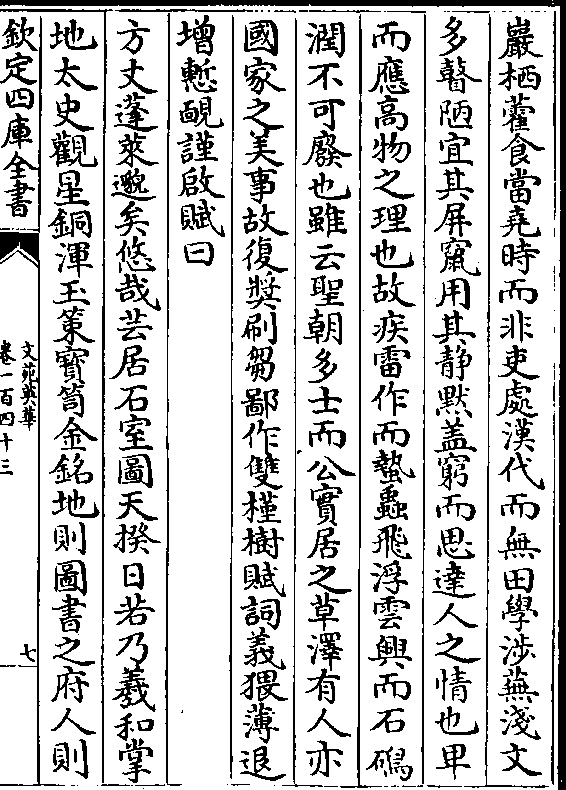 巖栖藿食當堯時而非吏處漢代而無田學涉蕪淺文
多聱陋宜其屏竄用其静黙盖窮而思達人之情也卑
而應高物之理也故疾雷作而蟄蟲飛浮雲興而石礀
潤不可廢也雖云聖朝多士而公實居之草澤有人亦
國家之美事故復奨刷芻鄙作雙槿樹賦詞義猥薄退
增慙靦謹啟賦曰
方丈蓬萊邈矣悠哉芸居石室圖天揆日若乃羲和掌
地太史觀星銅渾玉策寳笥金銘地則圖書之府人則
欽定四庫全書
文苑英華
卷一百四十三
七